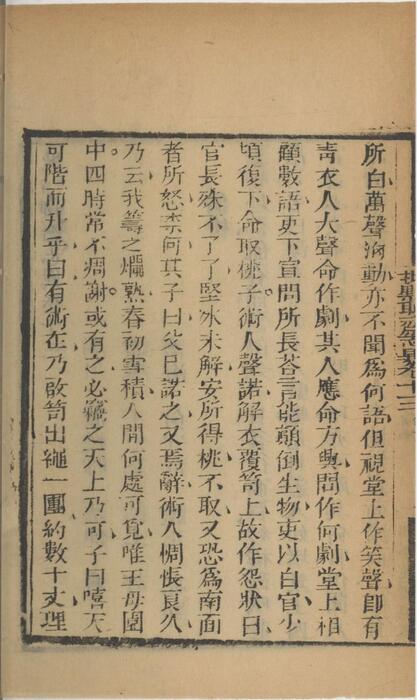 所白萬聲洶動亦不聞爲何語但視堂上作笑聲卽有
靑衣人大聲命作劇其人應命方興問作何劇堂上相
顧數語吏下宣問所長荅言能顚倒生物吏以白官少
頃復下命取桃子術人聲諾解衣覆笥上故作怨狀曰
官長殊不了了堅冰未解安所得桃不取又恐爲南面
者所怒柰何其子曰父已諾之又焉辭術人惆悵良久
乃云我籌之爛熟春初雪積人間何處可覓唯王母園
中四時常不凋謝或有之必竊之天上乃可子曰嘻天
可階而升乎曰有術在乃啟笥出繩一團約數十丈理